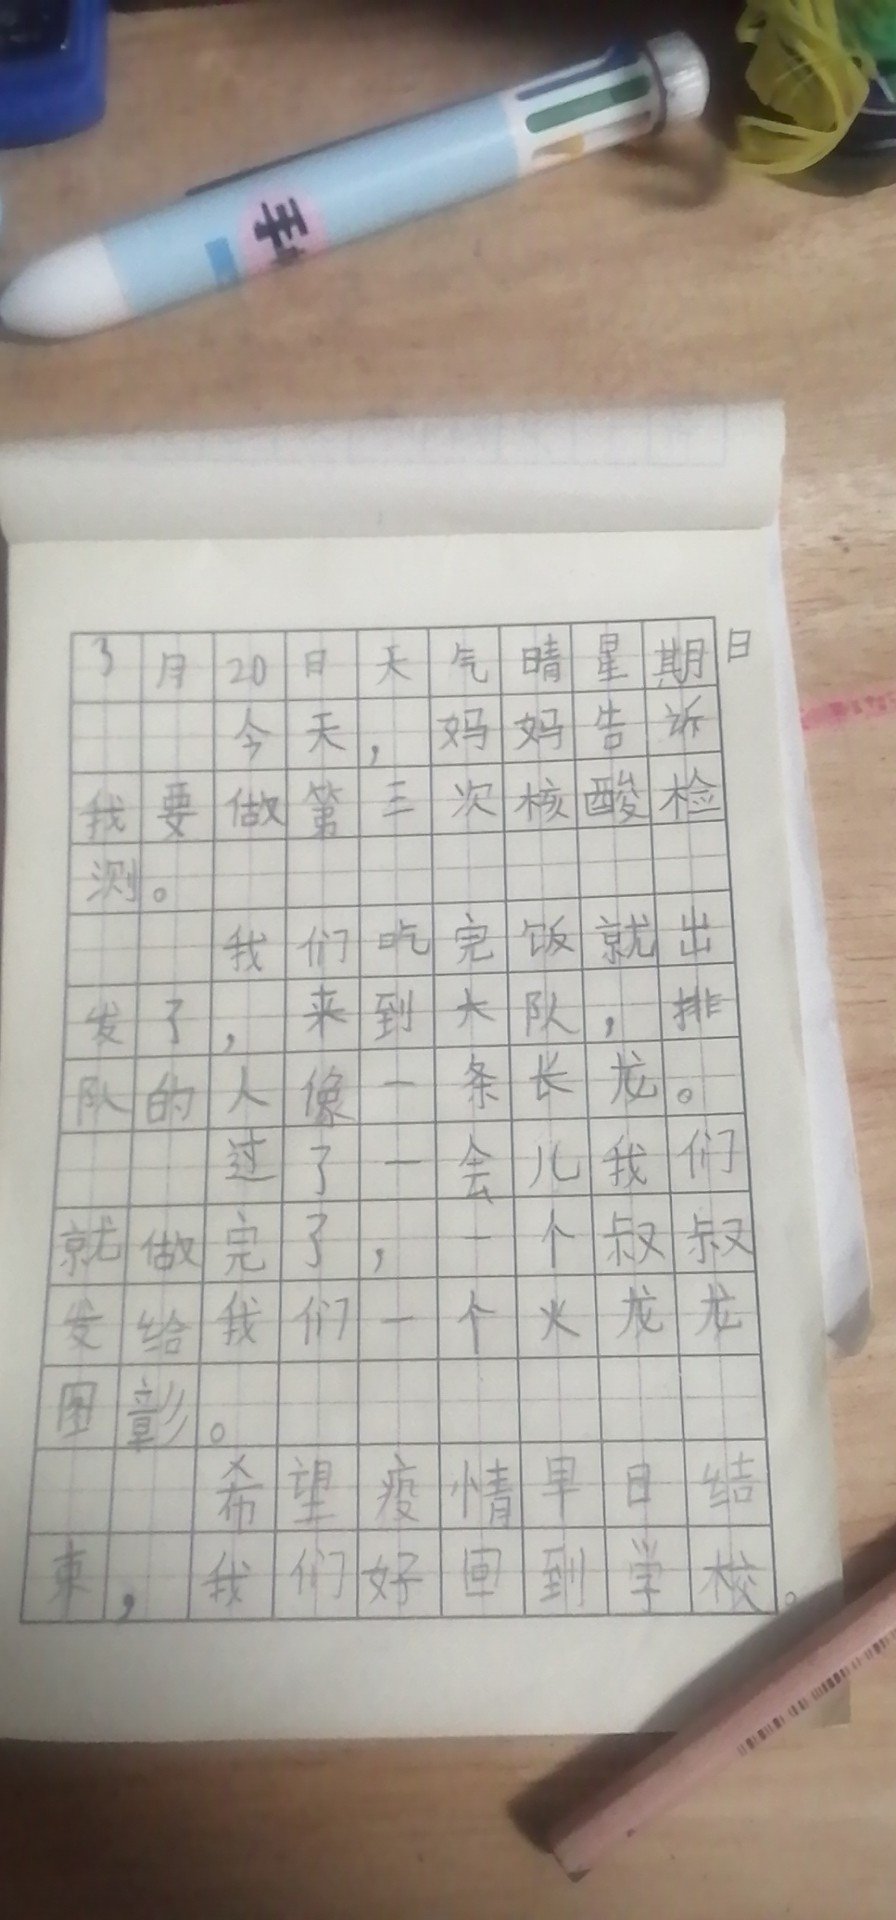 手
3月20日天气晴星期日
今天，妈妈告诉
我要做第三次核酸检
测。
我们吃完饭就出
发了，来到大队，排
队的人像一条长龙。
过了一会儿我们
就做完了，一个叔叔
发给我们一个火龙龙
图彰。
希望疫情早日结
束，我们好回到学校。